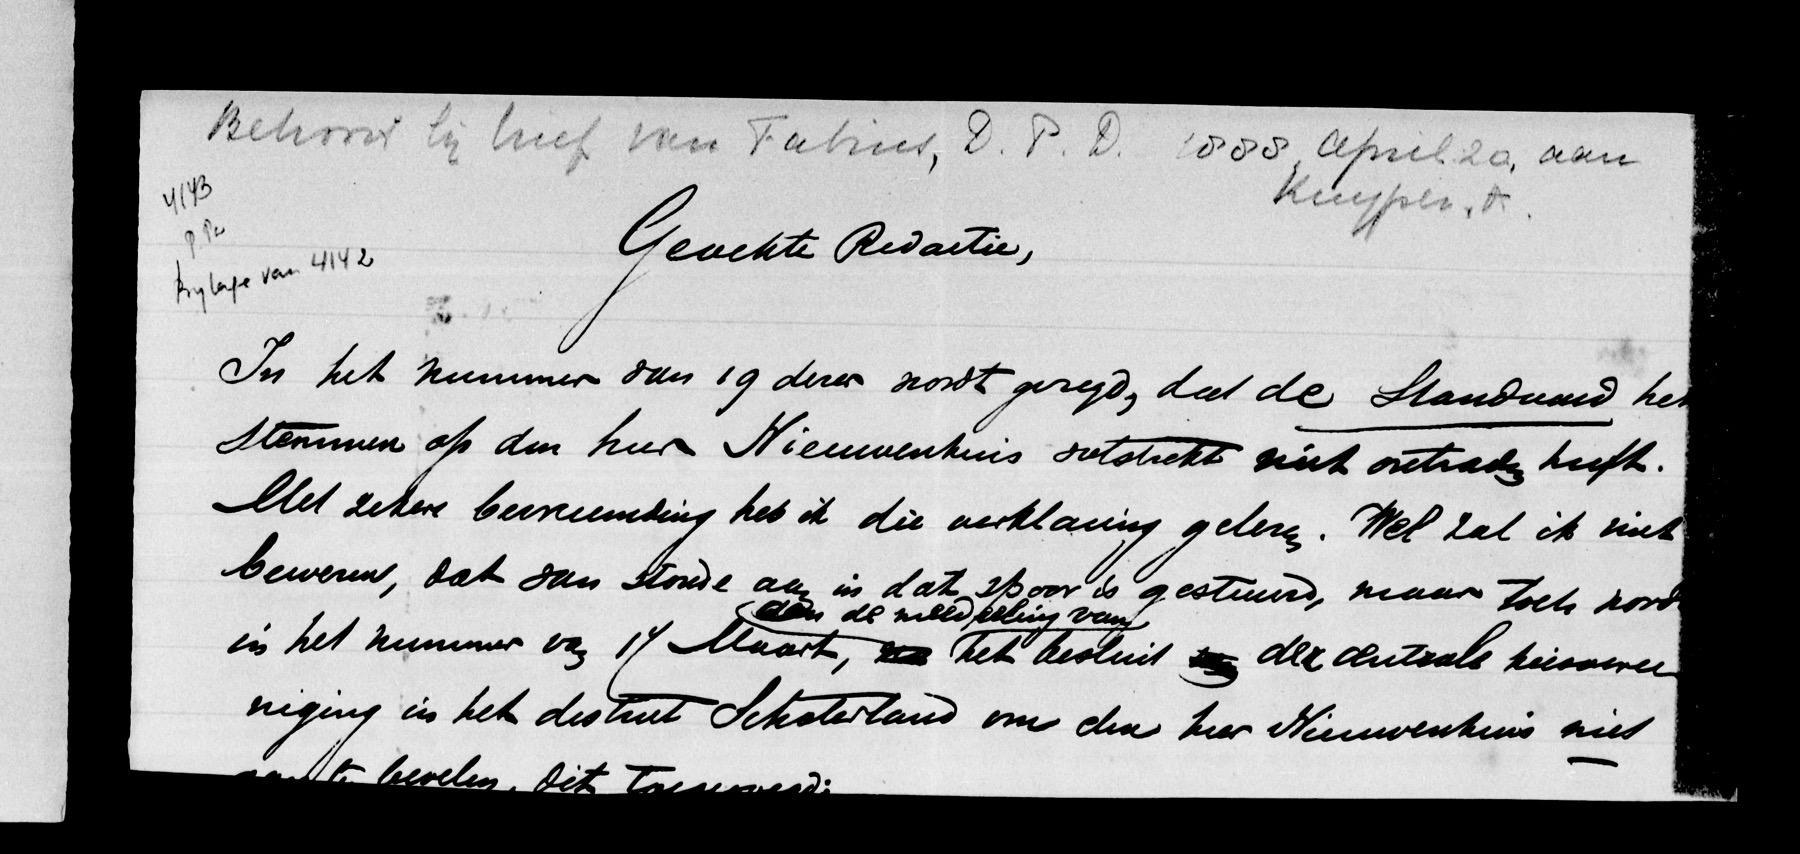 Behoort bij brief van Fabius, D. P. D. 1888, april 20, aan
Kuyper, A.
4143
P Pu
Bijlage van 4142
Geachte Redactie,
In het nummer van 19 dezer wordt gezegd, dat de Standaard het
stemmen op den heer Nieuwenhuis volstrekt niet ontraden heeft.
Met zekere bevreemding heb ik die verklaring gelezen. Wel zal ik niet
beweren, dat van stonde aan in dat spoor is gestuurd, maar toch wordt
aan de mededeeling van
in het nummer van 14 Maart, het besluit der centrale kiesveree
niging in het district Schoterland om den heer Nieuwenhuis niet
aan te bevelen, dit toegevoegd: